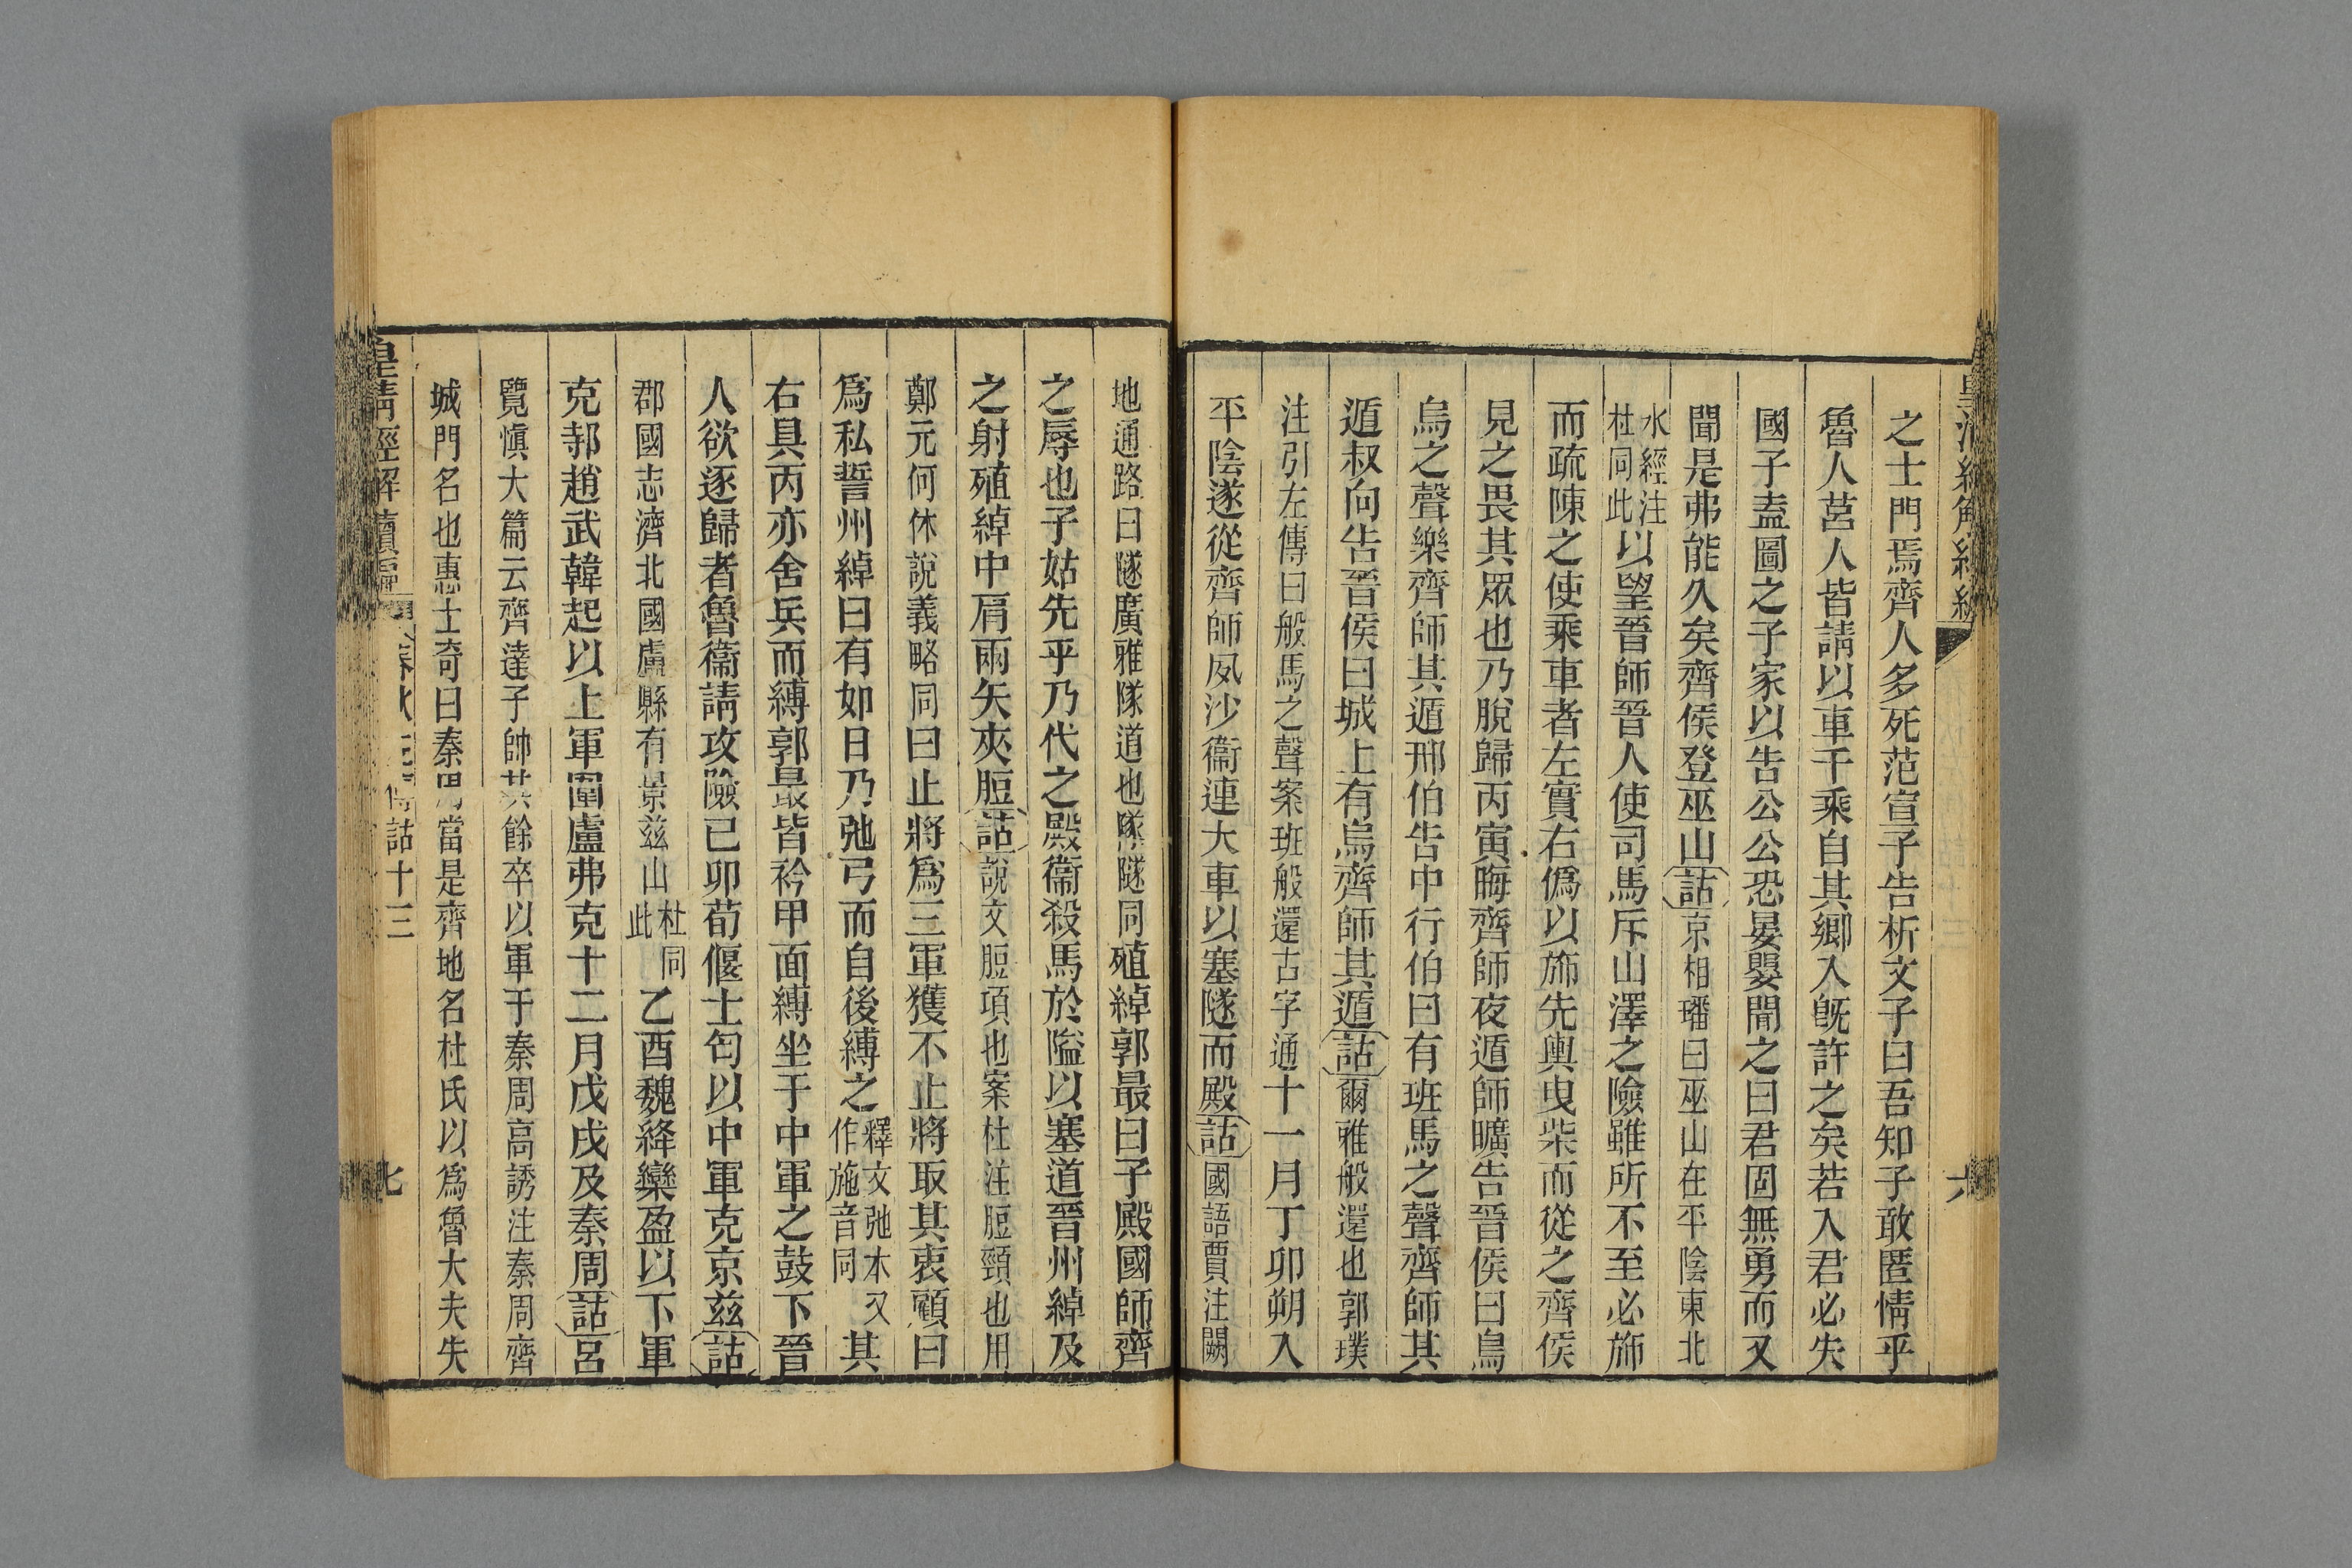 之士門焉齊人多死范宣子告析文子曰吾知子敢匿情乎
魯人莒人皆請以車千乘自其鄉入旣許之矣若入君必失
國子盍圖之子家以告公公恐晏嬰聞之曰君固無勇而又
聞是弗能久矣齊侯登巫山詁京相璠曰巫山在平陰東北
水經注杜同此以望晉師晉人使司馬斥山澤之險雖所不至必斾
而疏陳之使乘車者左實右僞以斾先輿曳柴而從之齊侯
見之畏其眾也乃脫歸丙寅晦齊師夜遁師曠告晉侯曰鳥
烏之聲樂齊師其遁邢伯告中行伯曰有班馬之聲齊師其
遁叔向告晉侯曰城上有烏齊師其遁詁爾雅般還也郭璞
注引左傳曰般馬之聲案班般還古字通十一月丁卯朔入
平陰遂從齊師夙沙衞連大車以塞隧而殿詁國語賈注闕
地通路曰隧廣雅隊道也隊隧同殖綽郭最曰子殿國師齊
之辱也子姑先乎乃代之殿衞殺馬於隘以塞道晉州綽及
之射殖綽中肩兩矢夾脰詁說文脰項也案杜注脰頸也用
鄭元何休說義略同曰止將爲三軍獲不止將取其衷顧曰
爲私誓州綽曰有如日乃弛弓而自後縛之釋文弛本又作施音同其
右具丙亦舍兵而縛郭最皆衿甲面縛坐于中軍之鼓下晉
人欲逐歸者魯衞請攻險已卯荀偃士匄以中軍克京茲詁
郡國志濟北國盧縣有景茲山杜同此乙酉魏絳欒盈以下軍
克邿趙武韓起以上軍圍盧弗克十二月戊戌及秦周詁呂
覽愼大篇云齊達子帥其餘卒以軍于秦周高誘注秦周齊
城門名也惠士奇曰秦周當是齊地名杜氏以爲魯大夫失
皇淸經解續編
傳詁十三